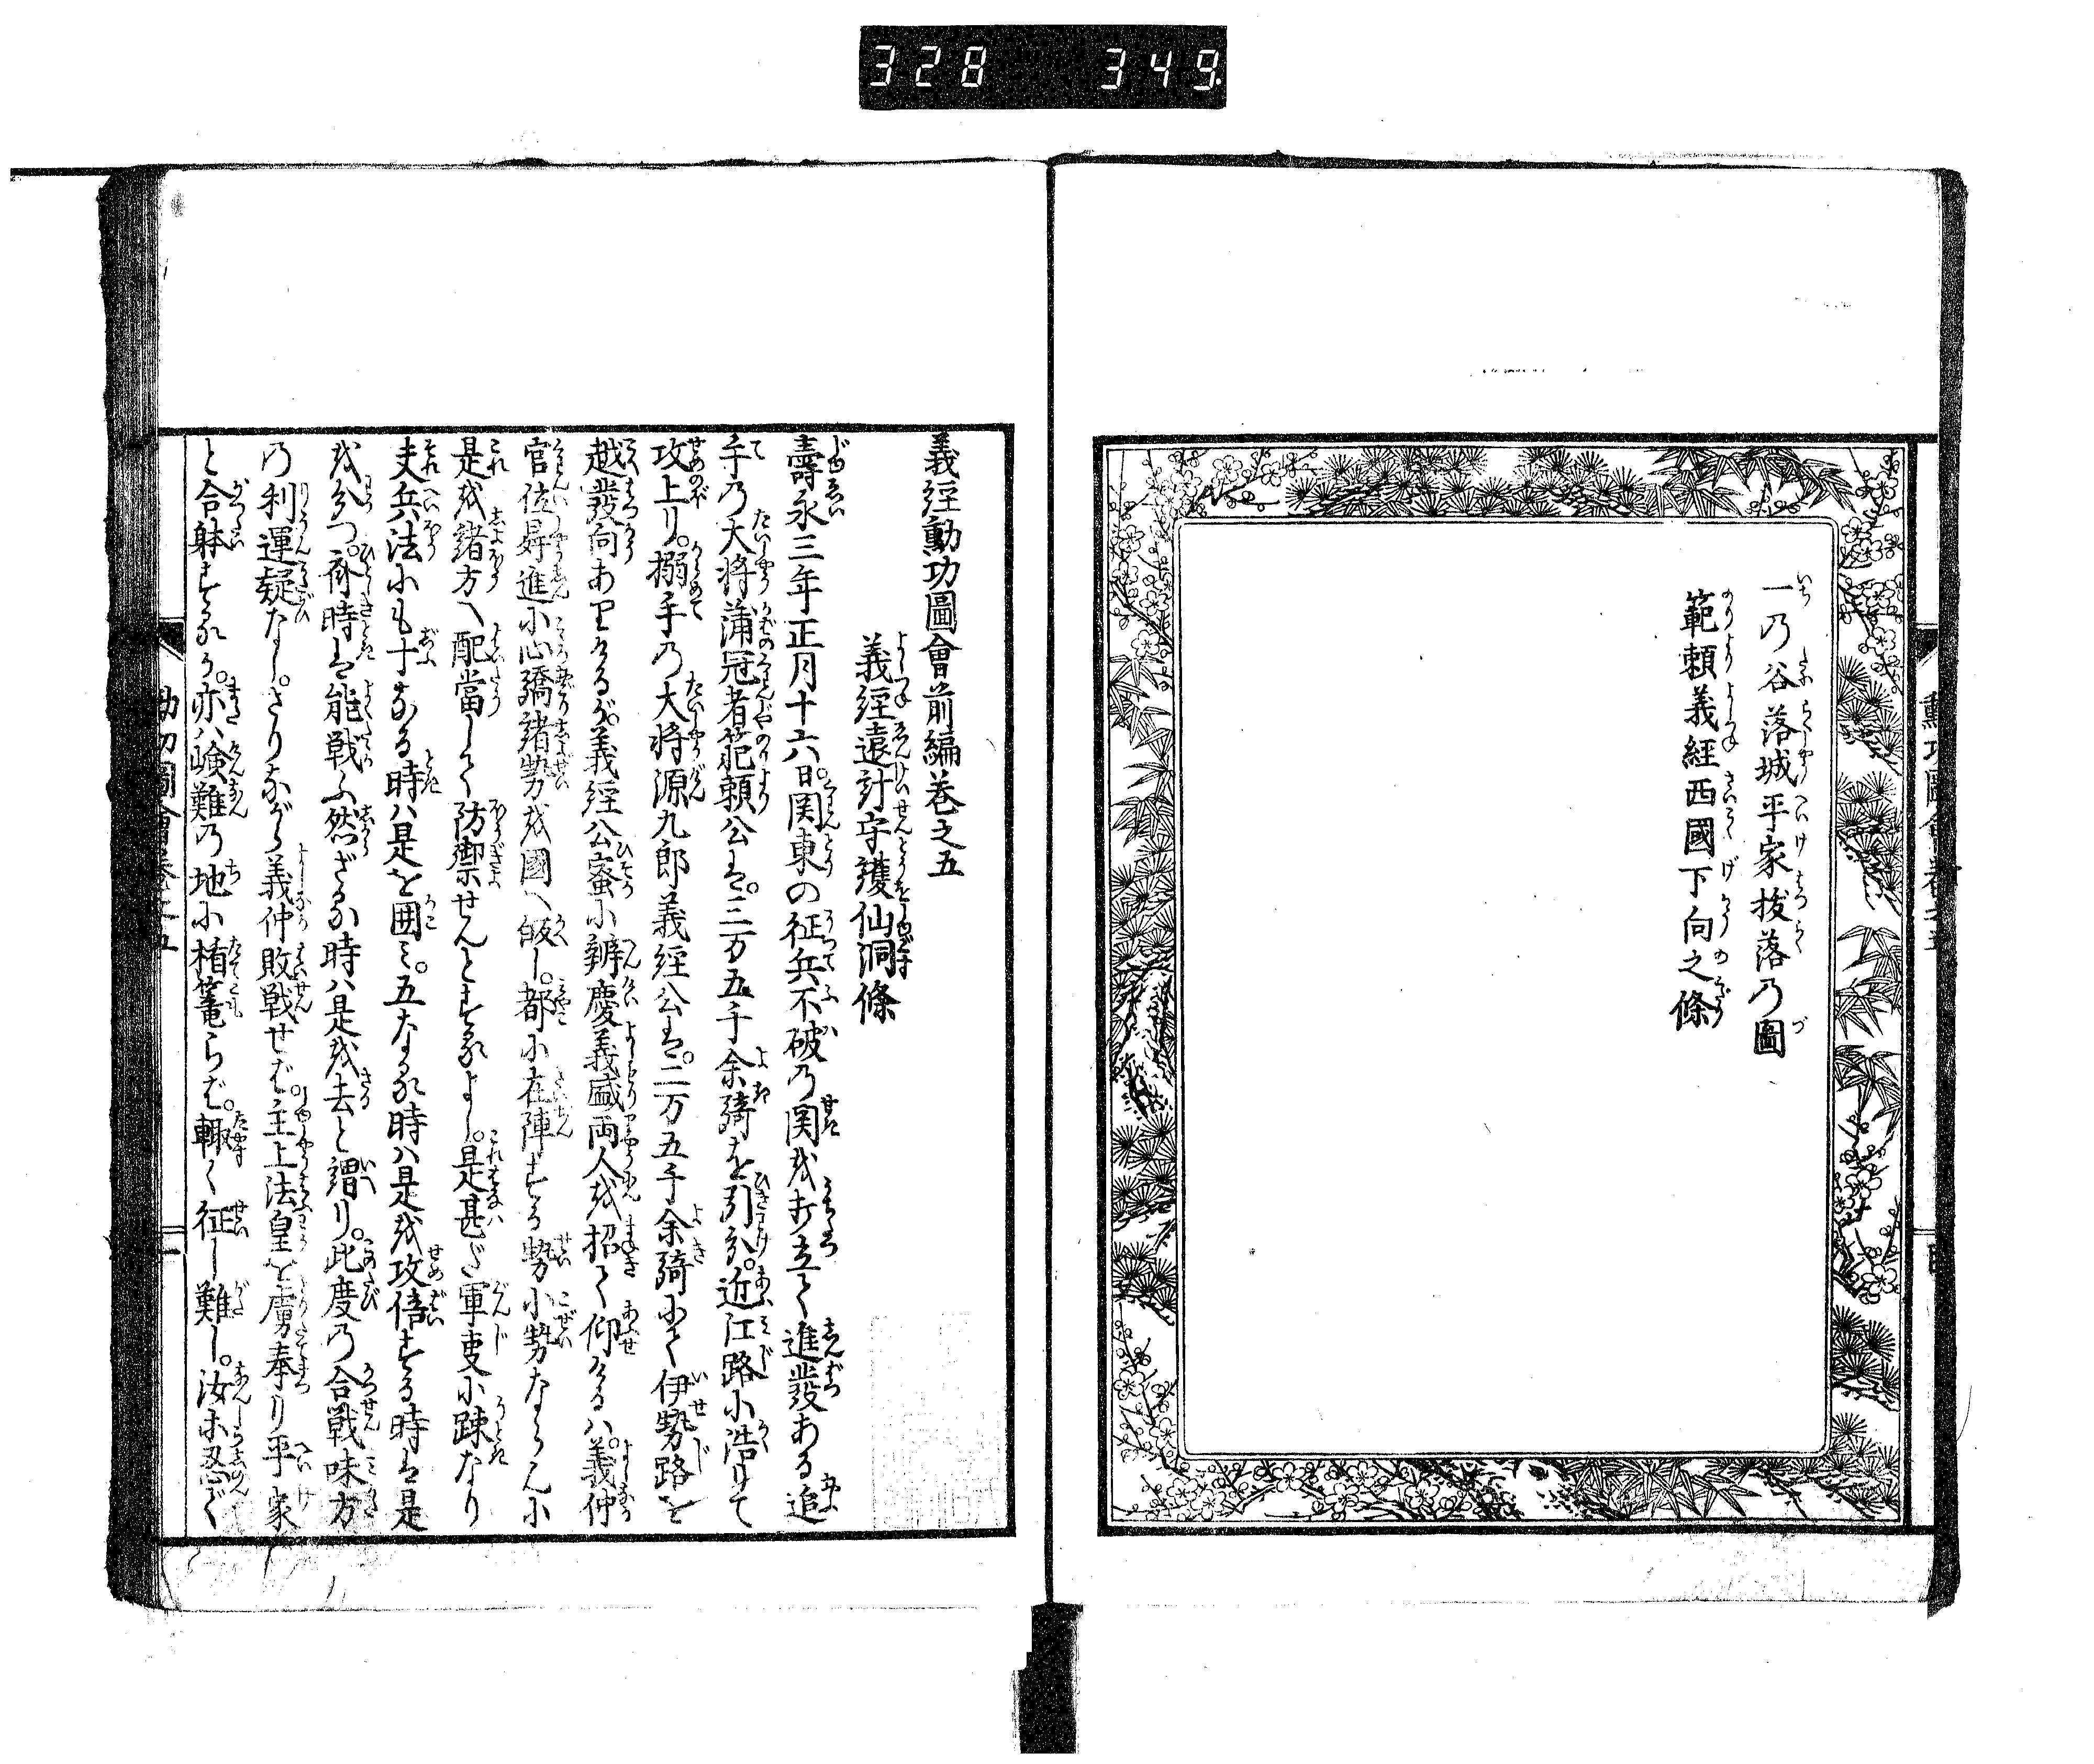 328 349
一乃谷落城平家抜落乃圖
範頼義経西國下向之條
義経勲功圖會前編巻之五
義経遠計守護仙洞條
壽永三年正月十六日。関東の征兵不破乃関我打立て進發ある追
手乃大将蒲冠者範頼公は。三万五千余騎を引分。近江路に浩りて
攻上り。搦手乃大将源九郎義経公は。二万五千余騎にて伊勢路を
越發向ありけるが。義経公密に辨慶義盛両人を招て仰けるハ。義仲
官位昇進に心驕諸勢を國へ皈し。都に在陣する勢小勢ならんに
是を諸方へ配當して防禦せんとするよし。是甚だ軍叓に踈なり
夫兵法にも十なる時ハ是を囲ミ。五なる時ハ是を攻倍する時は是
を分つ。斉時は能戦ふ然ざる時ハ是を去と謂り。此度乃合戦味方
乃利運疑なし。さりながら義仲敗戦せバ。主上法皇を虜奉り平家
と合躰するか。亦ハ嶮難乃地に楯篭らバ。輙く征し難し。汝等忍びて
勲功圖會巻之五 一